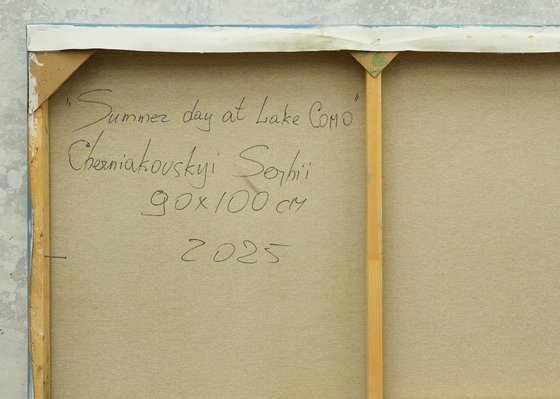 "Summer day at Lake Como"
Cherniakovskyi Serhii
90x100 см
2025